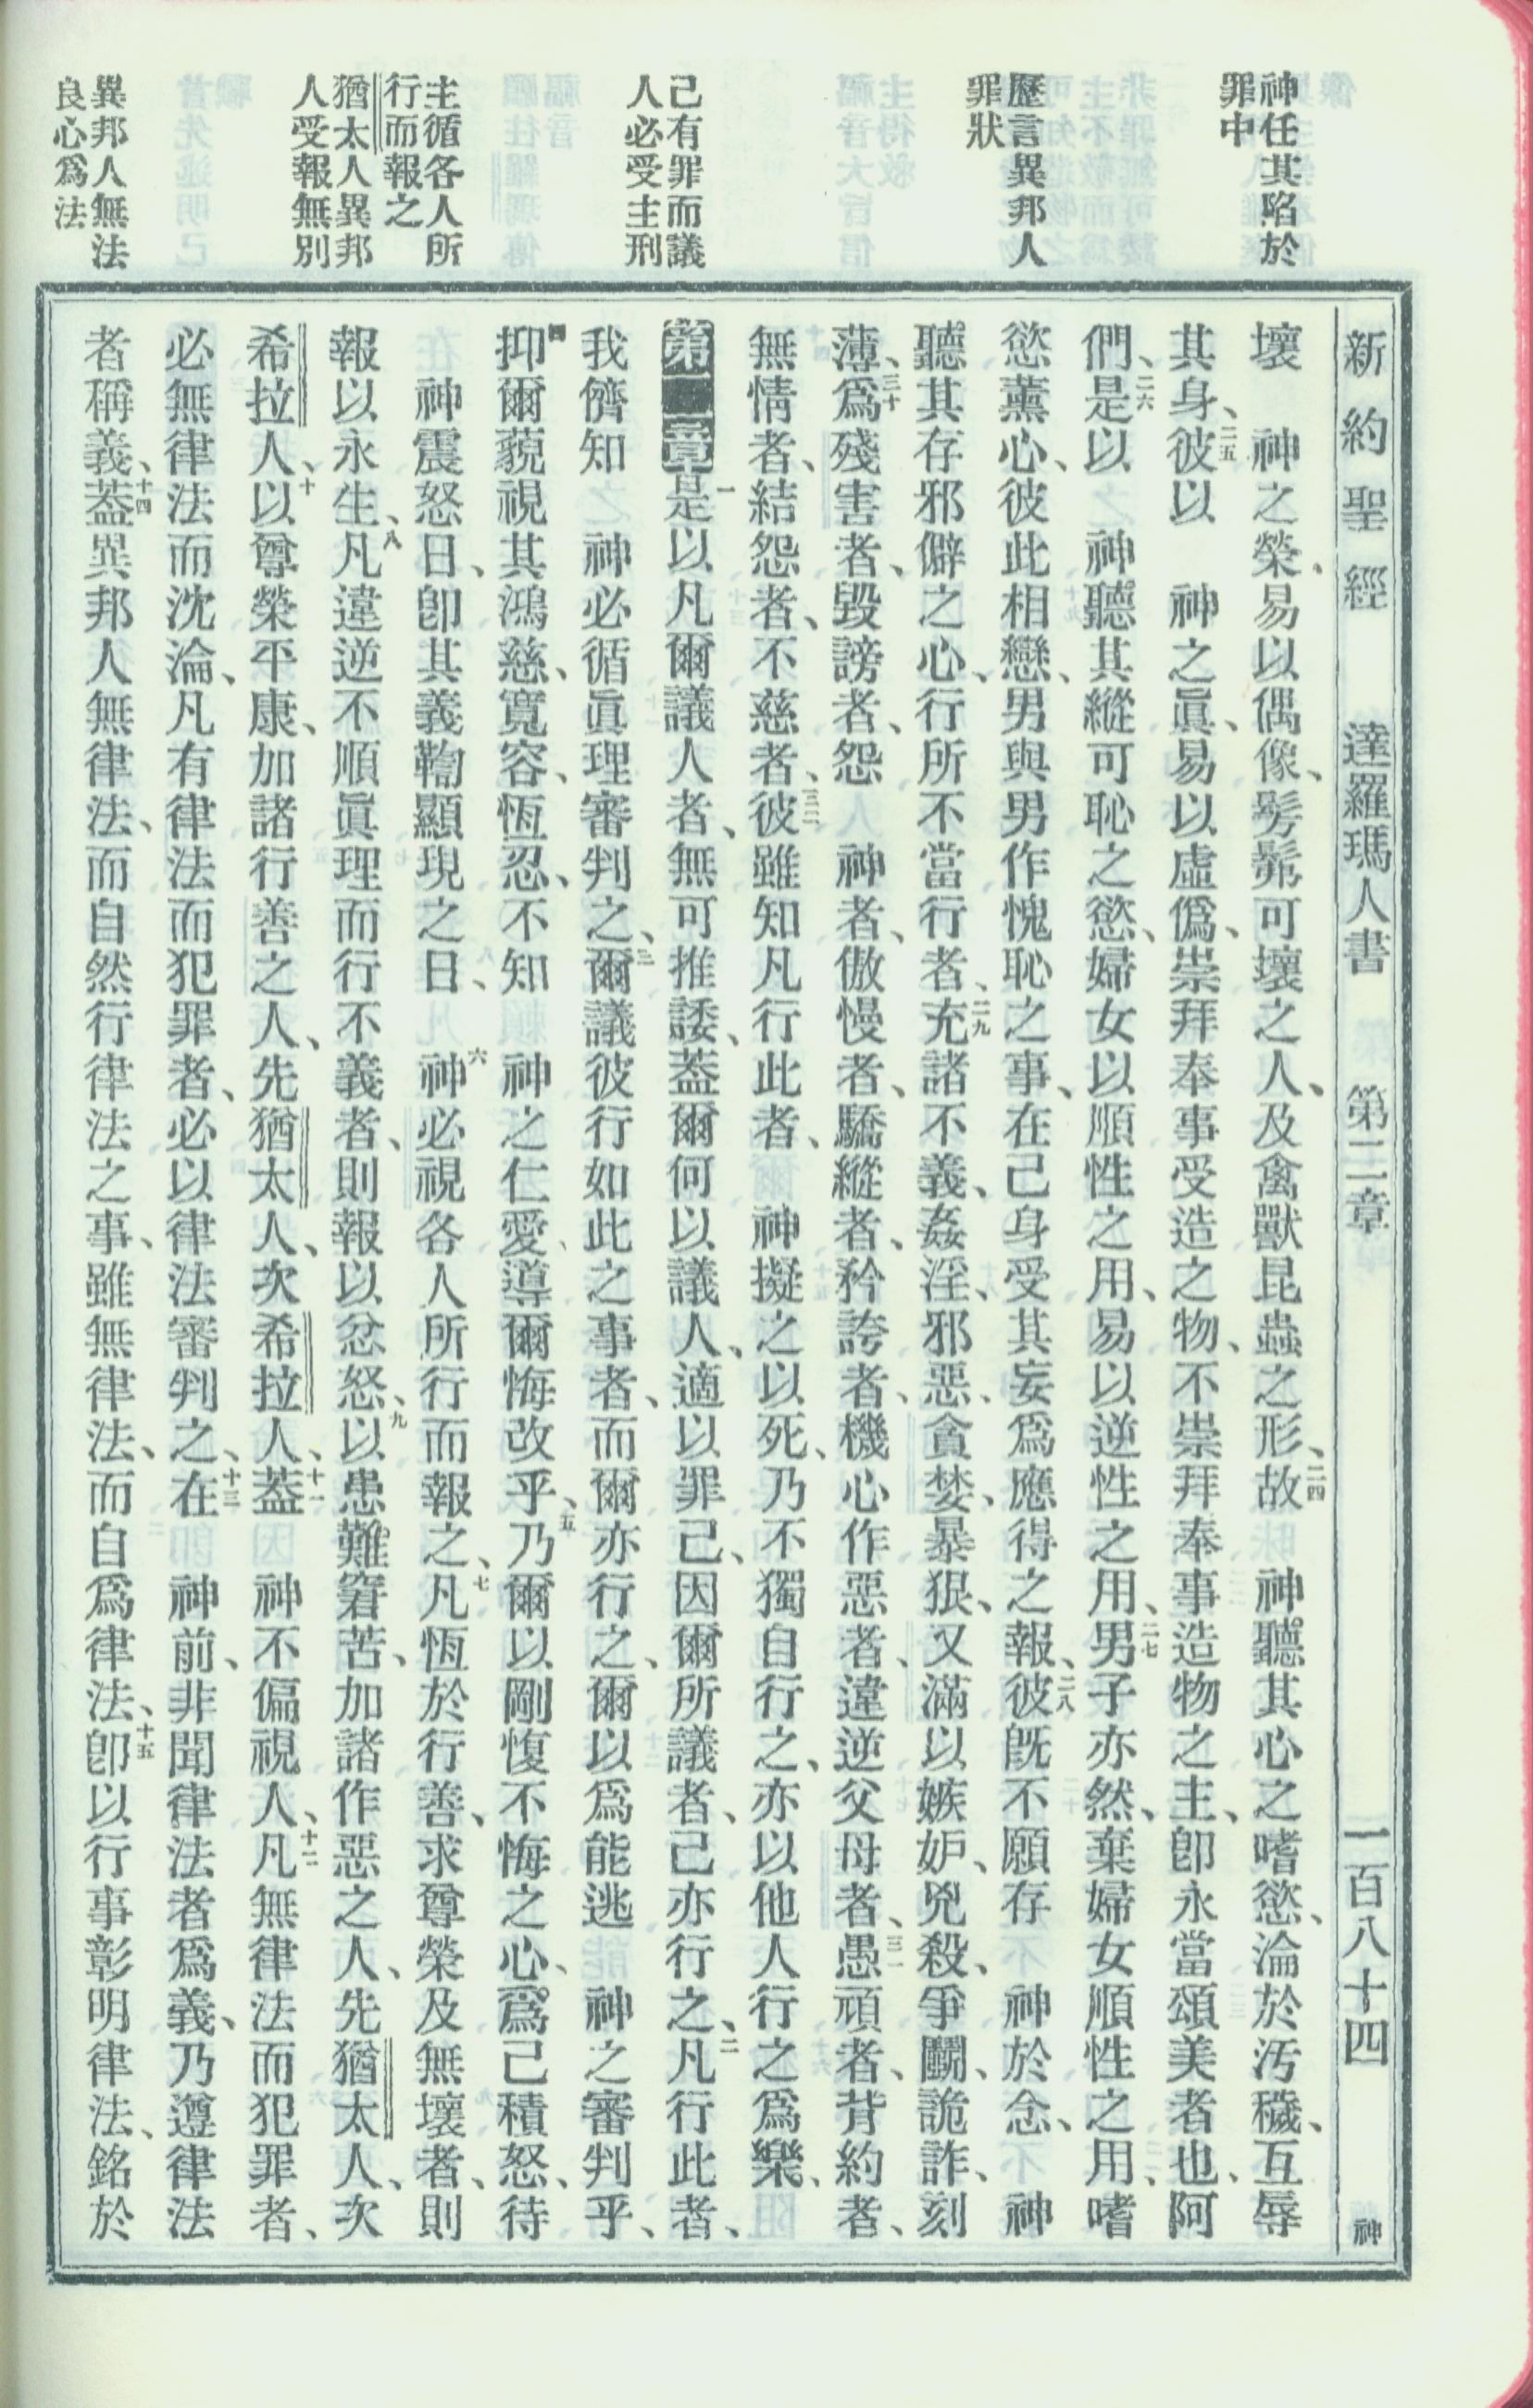 神任其陷於
罪中
歷言異邦人
罪狀
己有罪而議
人必受主刑
主循各人所
行而報之
猶太人異邦
人受報無別
異邦人無法
良心爲法
新約聖經 達羅瑪人書 第二章 一百八十四 神
壞 神之榮、易以偶像、髣髴可壞之人、及禽獸昆蟲之形、二四故 神聽其心之嗜慾、淪於汚穢、互辱
其身、二五彼以 神之眞、易以虛僞、崇拜奉事受造之物、不崇拜奉事造物之主、卽永當頌美者也、阿
們、二六是以 神聽其縱可恥之慾、婦女以順性之用、易以逆性之用、二七男子亦然、棄婦女順性之用、嗜
慾薰心、彼此相戀、男與男作愧恥之事、在己身受其妄爲應得之報、二八彼旣不願存 神於念、 神
聽其存邪僻之心、行所不當行者、二九充諸不義、姦淫、邪惡、貪婪、暴狠、又滿以嫉妒、兇殺、爭鬭、詭詐、刻
薄、三十爲殘害者、毀謗者、怨 神者、傲慢者、驕縱者、矜誇者、機心作惡者、違逆父母者、三一愚頑者、背約者、
無情者、結怨者、不慈者、三二彼雖知凡行此者、 神擬之以死、乃不獨自行之、亦以他人行之爲樂、
第二章 一是以凡爾議人者、無可推諉、蓋爾何以議人、適以罪己、因爾所議者、己亦行之、二凡行此者、
我儕知 神必循眞理審判之、三爾議彼行如此之事者、而爾亦行之、爾以爲能逃 神之審判乎、
四抑爾藐視其鴻慈、寬容、恆忍、不知 神之仁愛、導爾悔改乎、五乃爾以剛愎不悔之心、爲己積怒、待
神震怒日、卽其義鞫顯現之日、 六神必視各人所行而報之、七凡恆於行善、求尊榮及無壞者、則
報以永生、八凡違逆不順眞理而行不義者、則報以忿怒、九以患難窘苦、加諸作惡之人、先猶太人、次
希拉人、十以尊榮平康、加諸行善之人、先猶太人、次希拉人、十一蓋 神不偏視人、十二凡無律法而犯罪者、
必無律法而沈淪、凡有律法而犯罪者、必以律法審判之、十三在 神前、非聞律法者爲義、乃遵律法
者稱義、十四蓋異邦人無律法、而自然行律法之事、雖無律法、而自爲律法、十五卽以行事彰明律法、銘於